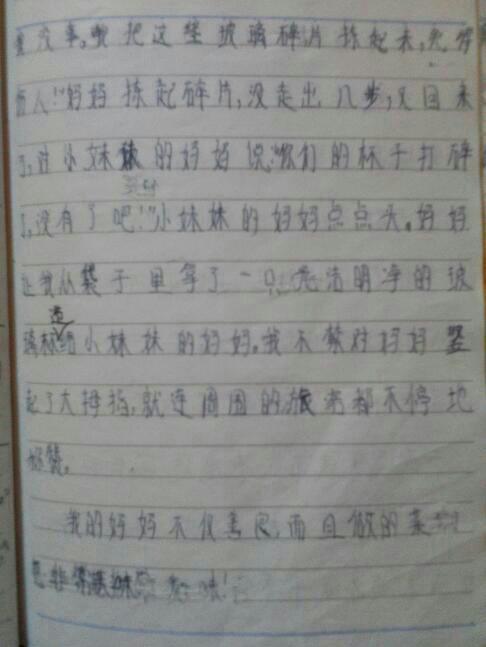 没事,我把这些玻璃碎片拣起来,免得
伤人!"妈妈拣起碎片,没走出几步,又回来
了,对小妹妹的妈妈说:"你们的杯子打碎
了,没有了吧!"小妹妹的妈妈点点头。妈妈
让我从袋子里拿了一只光洁明净的玻
璃杯送给小妹妹的妈妈。我不禁对妈妈竖
起了大拇指,就连周围的旅客都不停地
称赞。
我的妈妈不仅善良,而且做的菜
也非常美味!